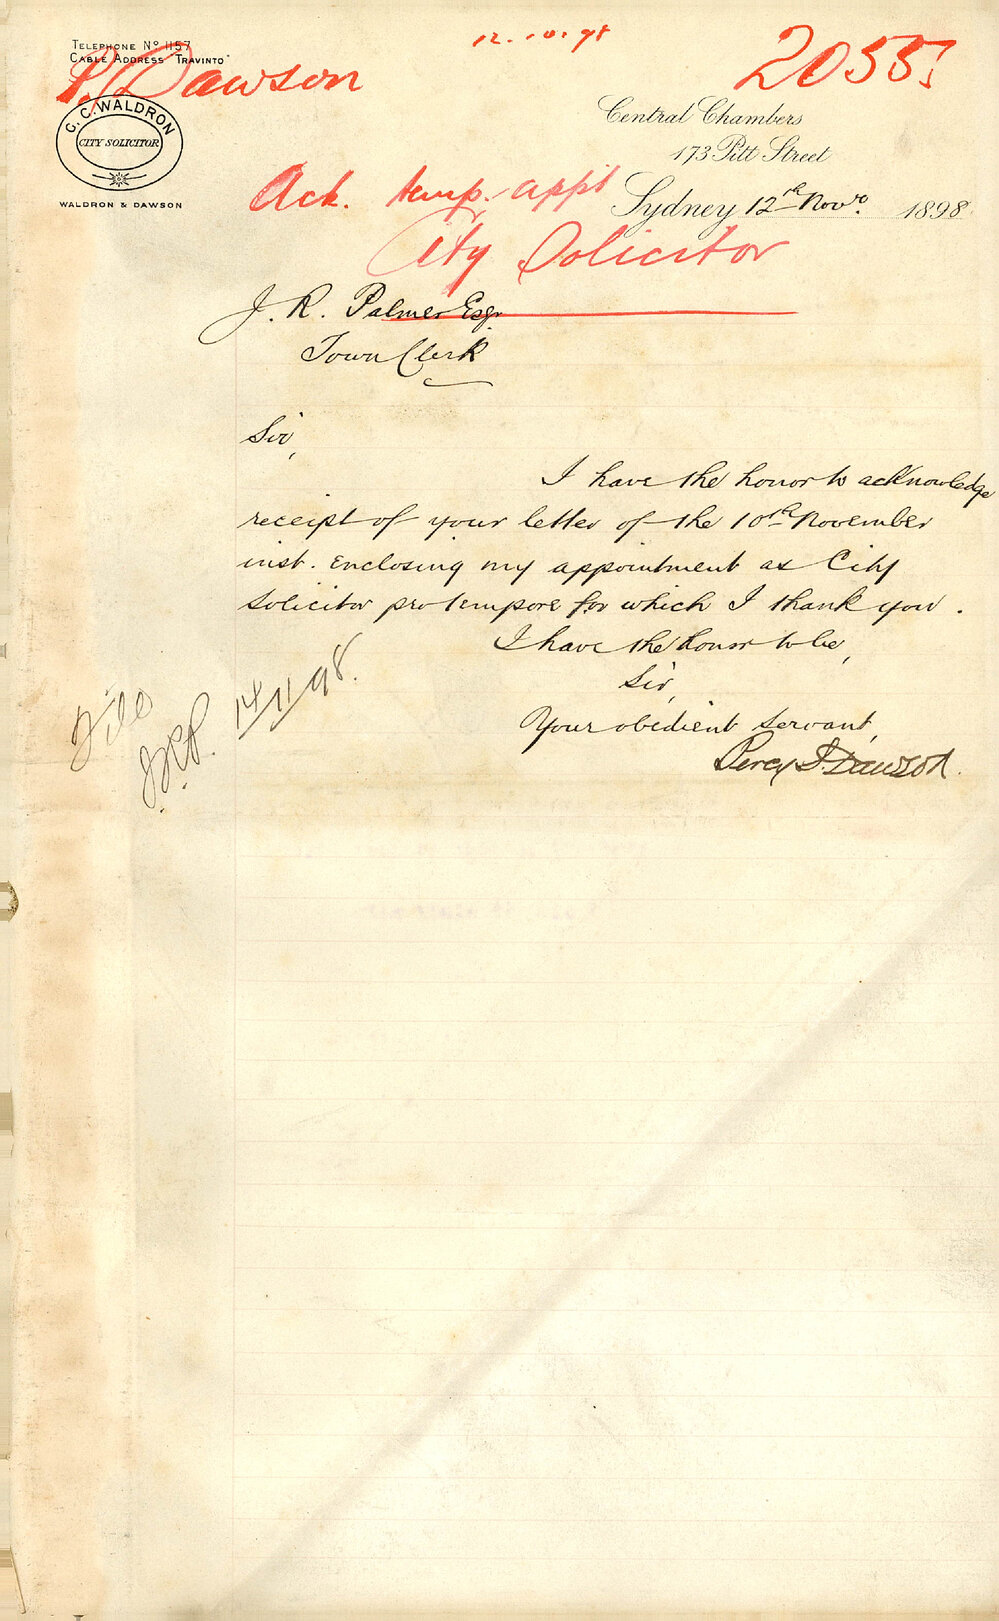 12.10.98
2055
TELEPHONE Nº 1157
CABLE ADDRESS "TRAVINTO"
P. Dawson
C. C. WALDRON
CITY SOLICITOR
WALDRON & DAWSON
Central Chambers
173 Pitt Street
Sydney 12th Novr. 1898
Ack. temp. appt
City Solicitor
J. R. Palmer Esqr.
Town Clerk
Sir,
I have the honor to acknowledge
receipt of your letter of the 10th November
inst. enclosing my appointment as City
Solicitor pro tempore for which I thank you.
I have the honor to be,
Sir,
Your obedient servant,
Percy S. Dawson.
File
JRP. 14/11/98.